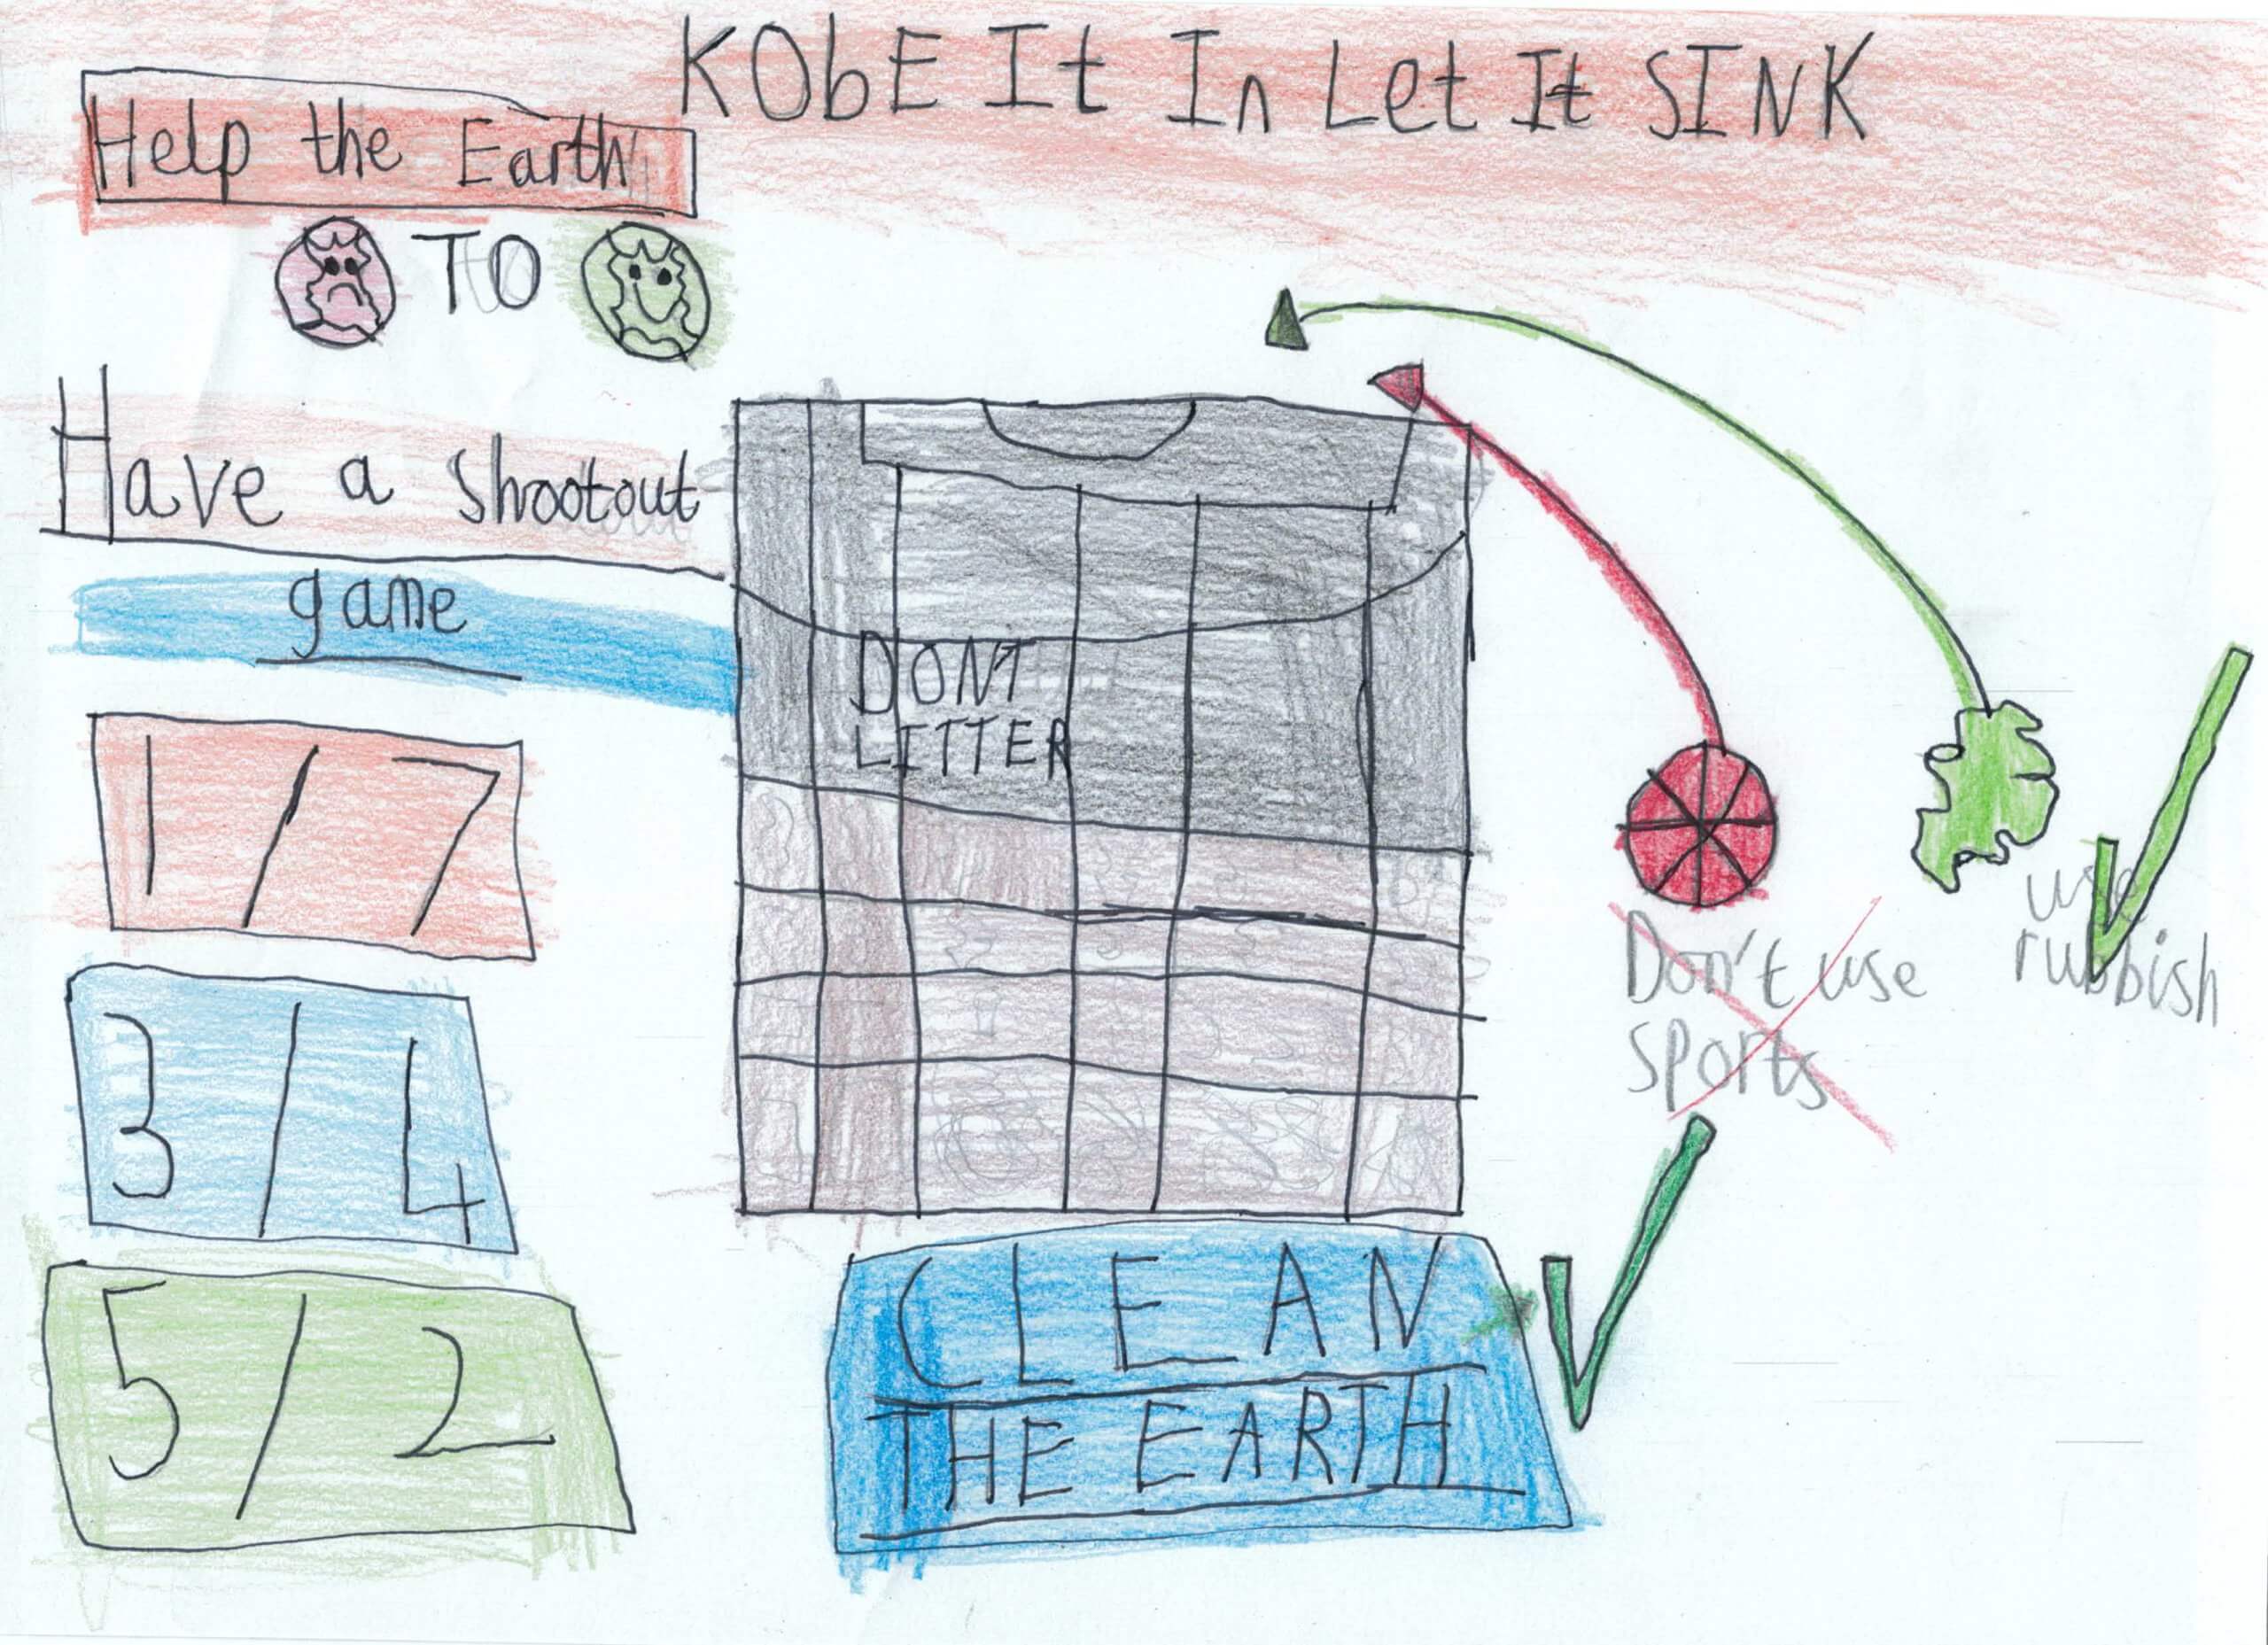 KObE It In Let It SINK
Help the Earth
TO
Have a shootout
game
1/7
3/4
5/2
DONT
LITTER
Don't use
sports
use
rubbish
CLEAN
THE EARTH